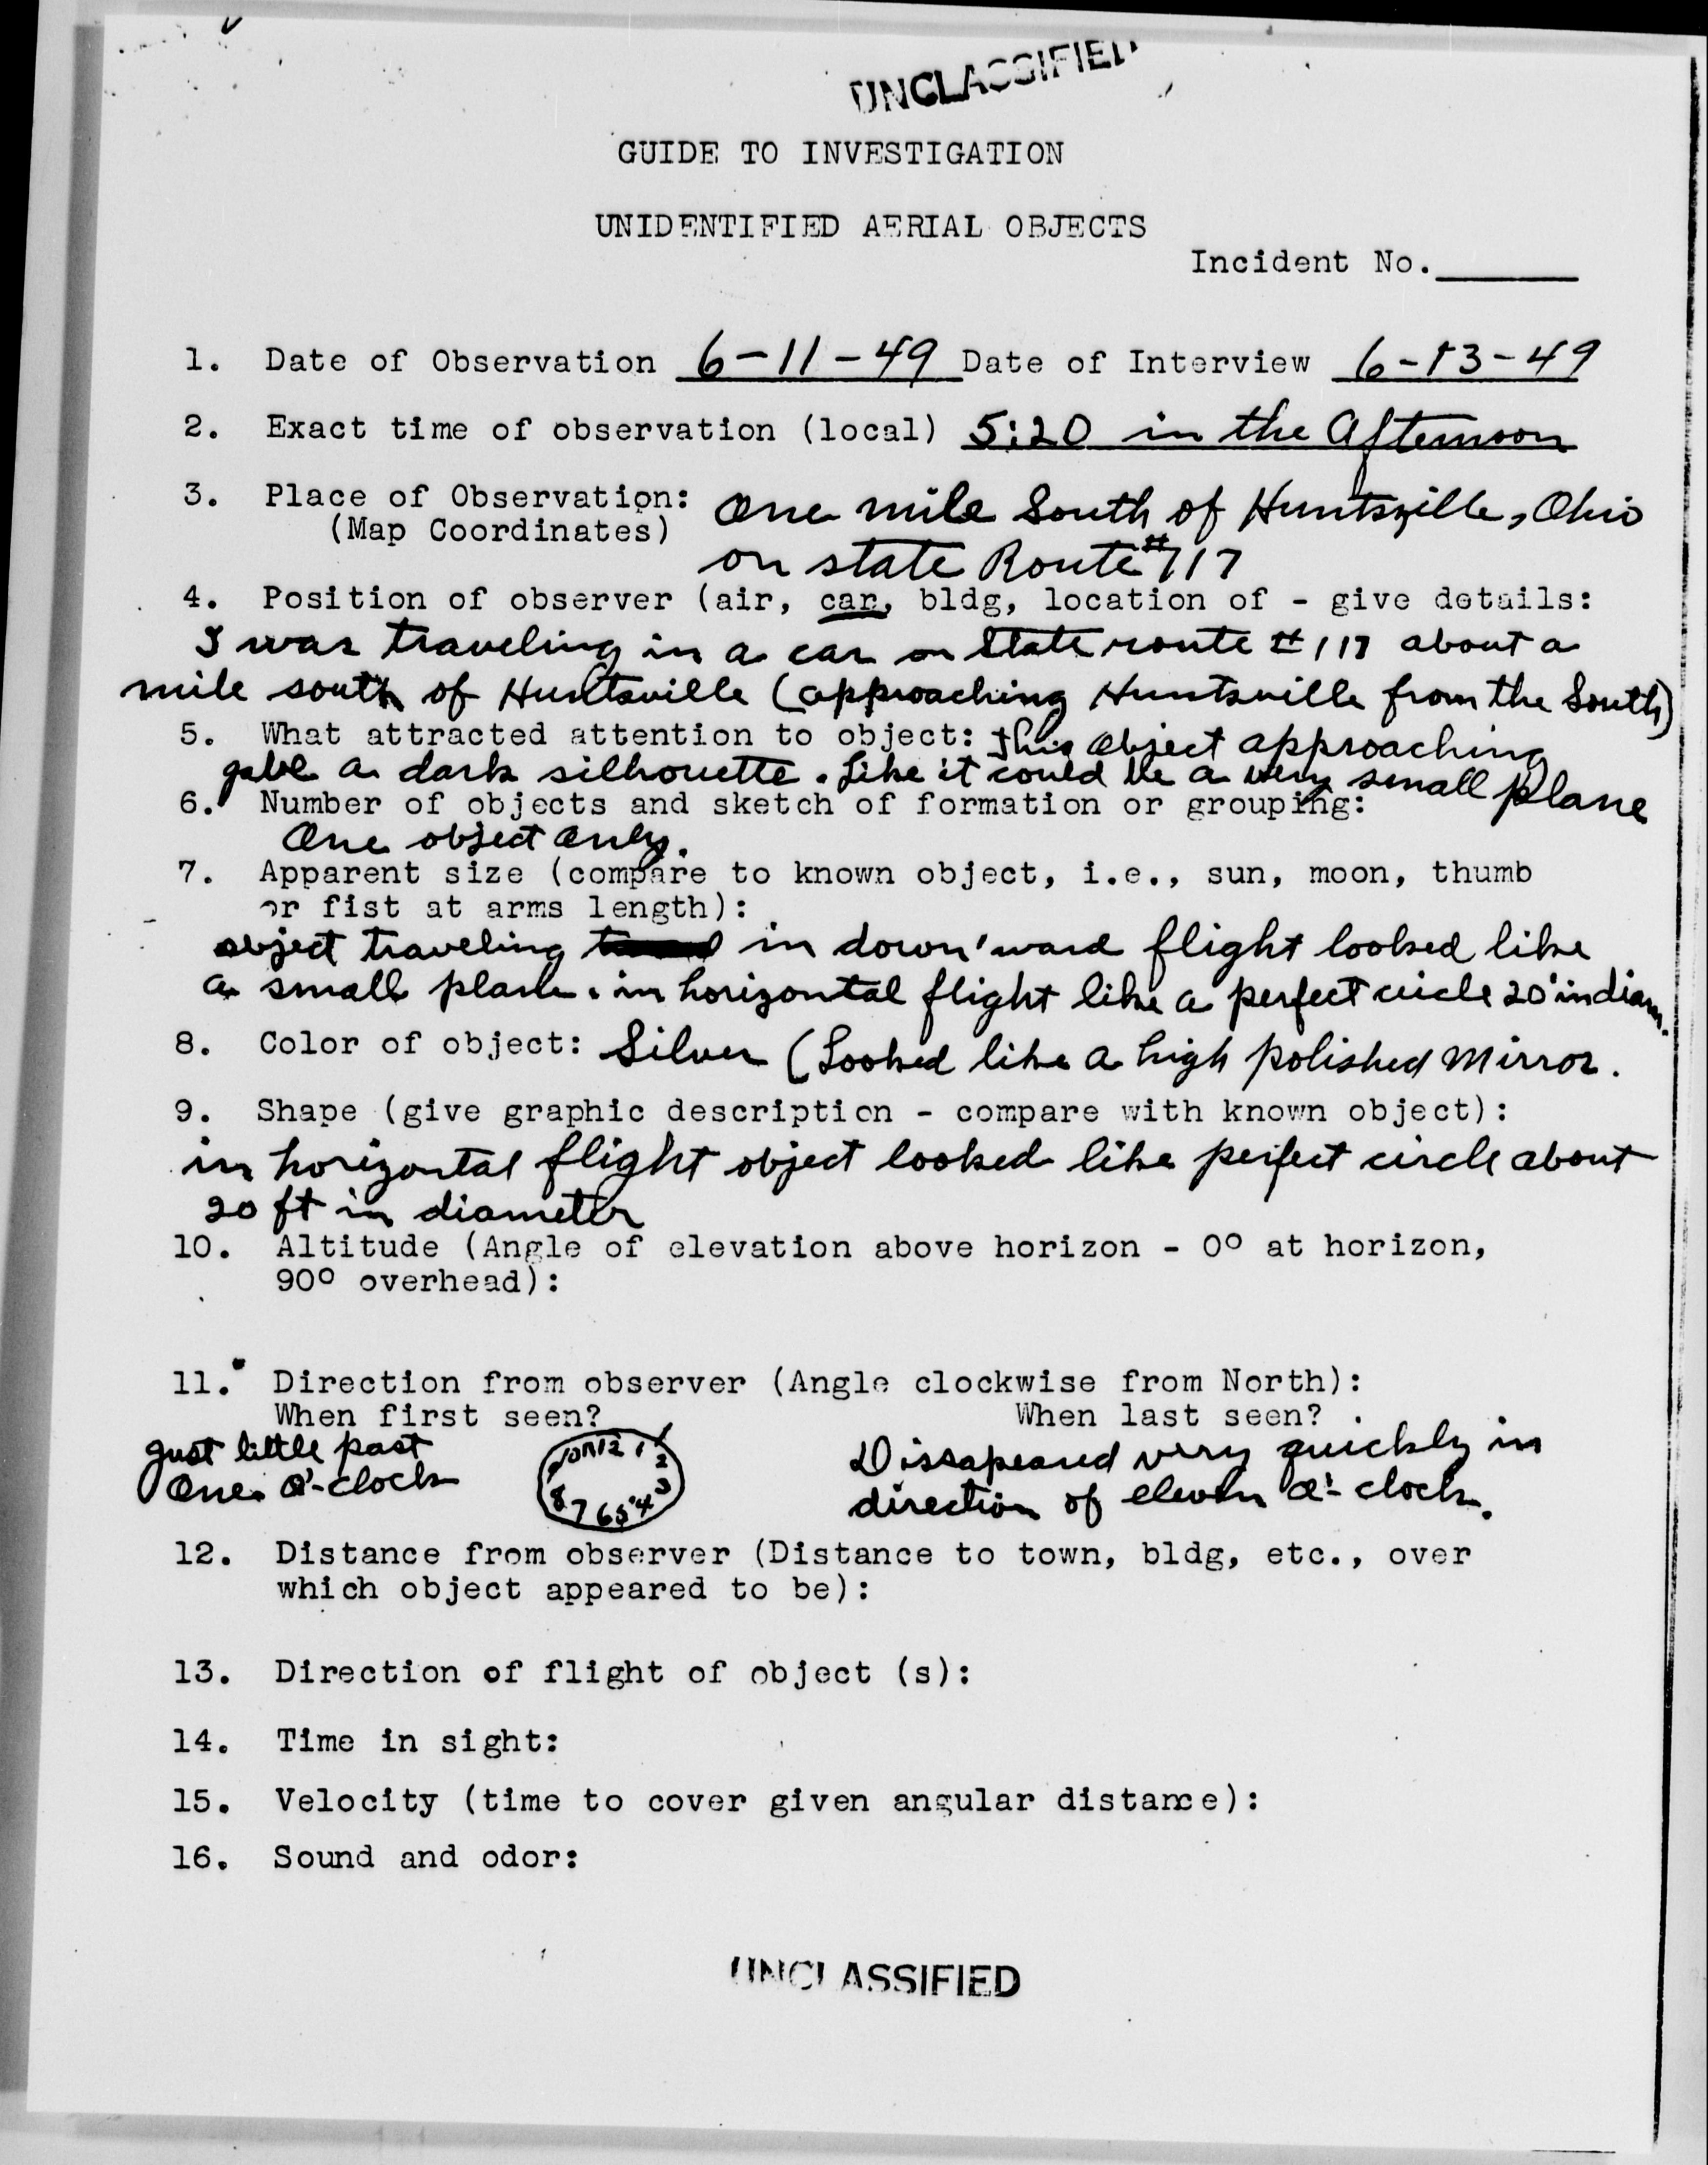 UNCLASSIFIED
GUIDE TO INVESTIGATION
UNIDENTIFIED AERIAL OBJECTS
Incident No.
1. Date of Observation 6-11-49 Date of Interview 6-13-49
2. Exact time of observation (local) 5:20 in the Afternoon
3. Place of Observation: One mile South of Huntsville, Ohio
(Map Coordinates)
on state Route #117
4. Position of observer (air, car, bldg, location of - give details:
I was traveling in a car on State route #117 about a
mile south of Huntsville (approaching Huntsville from the South)
5. What attracted attention to object: This object approaching
gave a dark silhouette. Like it could be a very small plane
6. Number of objects and sketch of formation or grouping:
One object only.
7. Apparent size (compare to known object, i.e., sun, moon, thumb
or fist at arms length):
object traveling in down'ward flight looked like
a small plane. in horizontal flight like a perfect circle 20' in diam.
8. Color of object: Silver (Looked like a high polished Mirror.
9. Shape (give graphic description - compare with known object):
in horizontal flight object looked like perfect circle about
20 ft in diameter
10. Altitude (Angle of elevation above horizon - 0° at horizon,
90° overhead):
11. Direction from observer (Angle clockwise from North):
When first seen? When last seen?
Just little past
One O'-clock
12 1 2 3 4 5 6 7 8
Dissapeared very quickly in
direction of eleven O'-clock.
12. Distance from observer (Distance to town, bldg, etc., over
which object appeared to be):
13. Direction of flight of object (s):
14. Time in sight:
15. Velocity (time to cover given angular distance):
16. Sound and odor:
UNCLASSIFIED